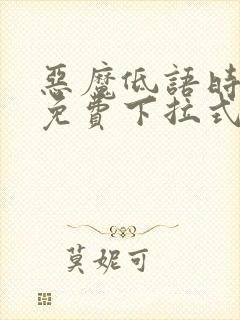 惡魔低語時
免費下拉式
莫妮可